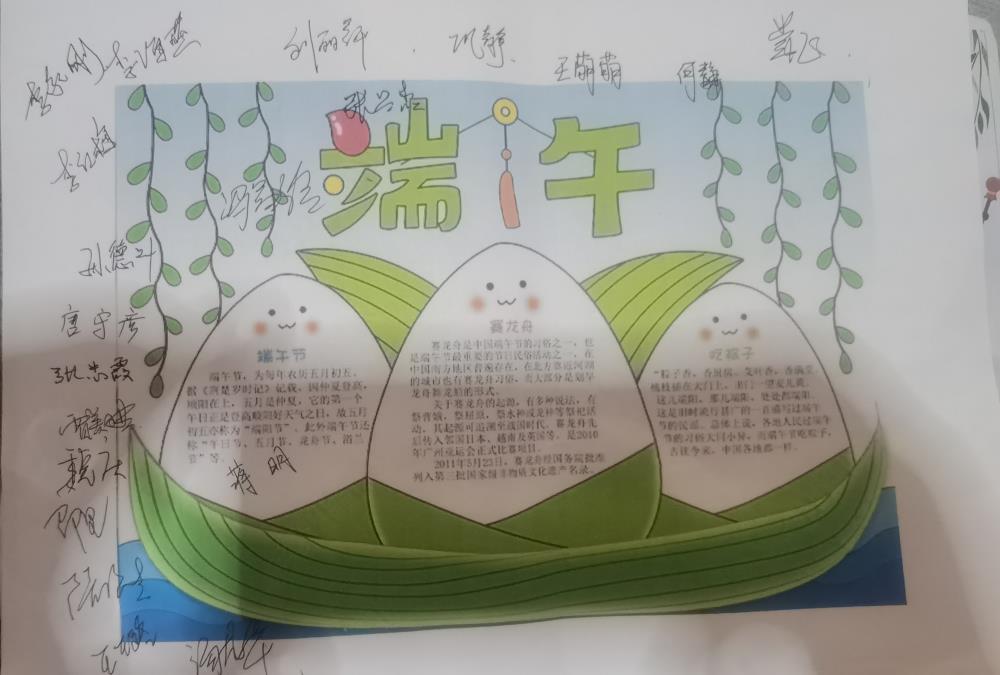 刘丽红
巩静
王萌萌
何静
端午
孙德斗
唐宇彦
蒋明
端午节
端午节，为每年农历五月初五。
据《荆楚岁时记》记载，因仲夏登高，
顺阳在上，五月是仲夏，它的第一个
午日正是登高顺阳好天气之日，故五月
初五亦称为“端阳节”。此外端午节还
称“午日节、五月节、龙舟节、浴兰
节”等。
赛龙舟
赛龙舟是中国端午节的习俗之一，也
是端午节最重要的节日民俗活动之一，在
中国南方地区普遍存在，在北方靠近河湖
的城市也有赛龙舟习俗，而大部分是划旱
龙舟舞龙船的形式。
关于赛龙舟的起源，有多种说法，有
祭曹娥，祭屈原，祭水神或龙神等祭祀活
动，其起源可追溯至战国时代。赛龙舟先
后传入邻国日本、越南及英国等，是2010
年广州亚运会正式比赛项目。
2011年5月23日，赛龙舟经国务院批准
列入第三批国家级非物质文化遗产名录。
吃粽子
“粽子香，香厨房。艾叶香，香满堂。
桃枝插在大门上，出门一望麦儿黄。
这儿端阳，那儿端阳，处处都端阳。”
这是旧时流行甚广的一首描写过端午
节的民谣。总体上说，各地人民过端午
节的习俗大同小异，而端午节吃粽子，
古往今来，中国各地都一样。